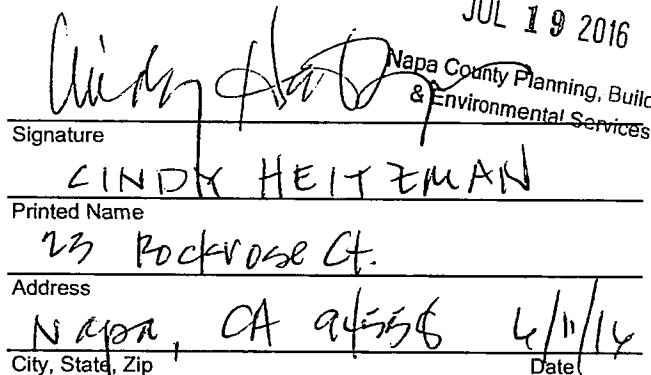 JUL 19 2016
Napa County Planning, Build
& Environmental Services
Cindy
Signature
CINDY HEITZMAN
Printed Name
23 Rockrose Ct.
Address
Napa, CA 94558 6/11/16
City, State, Zip Date